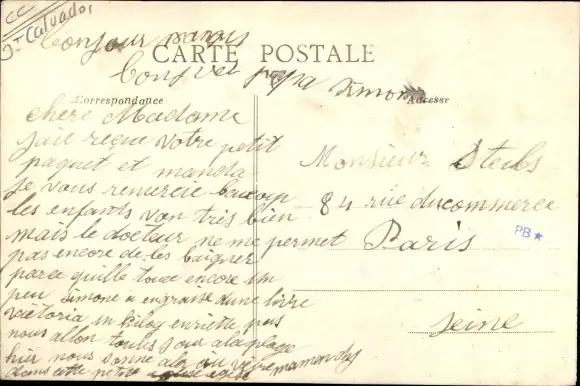 CC
Dt Calvados
bonjour
CARTE POSTALE
papa Simone
Correspondance
Adresse
chere Madame
jaie reçue votre petit
paquet et manda
je vous remercie baucoup
les enfants von très bien
mais le docteur ne me permet
pas encore de les baigner
parce quille touce encore un
peu Simone a engraise dune livre
victoria un kilog enriette pas
nous allon touts jour a la plage
hier nous somme
dans cette petite
Monsieur Steibs
84 rue du commerce
Paris
PB★
Seine